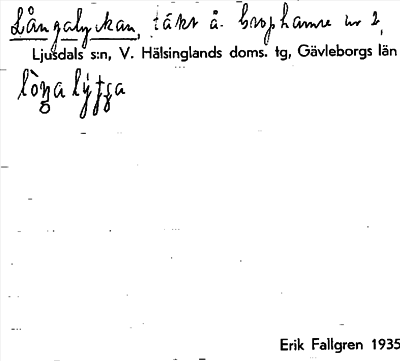 Långalyckan, täkt å Brophamre nr 2,
Ljusdals s:n, V. Hälsinglands doms. tg, Gävleborgs län
Erik Fallgren 1935